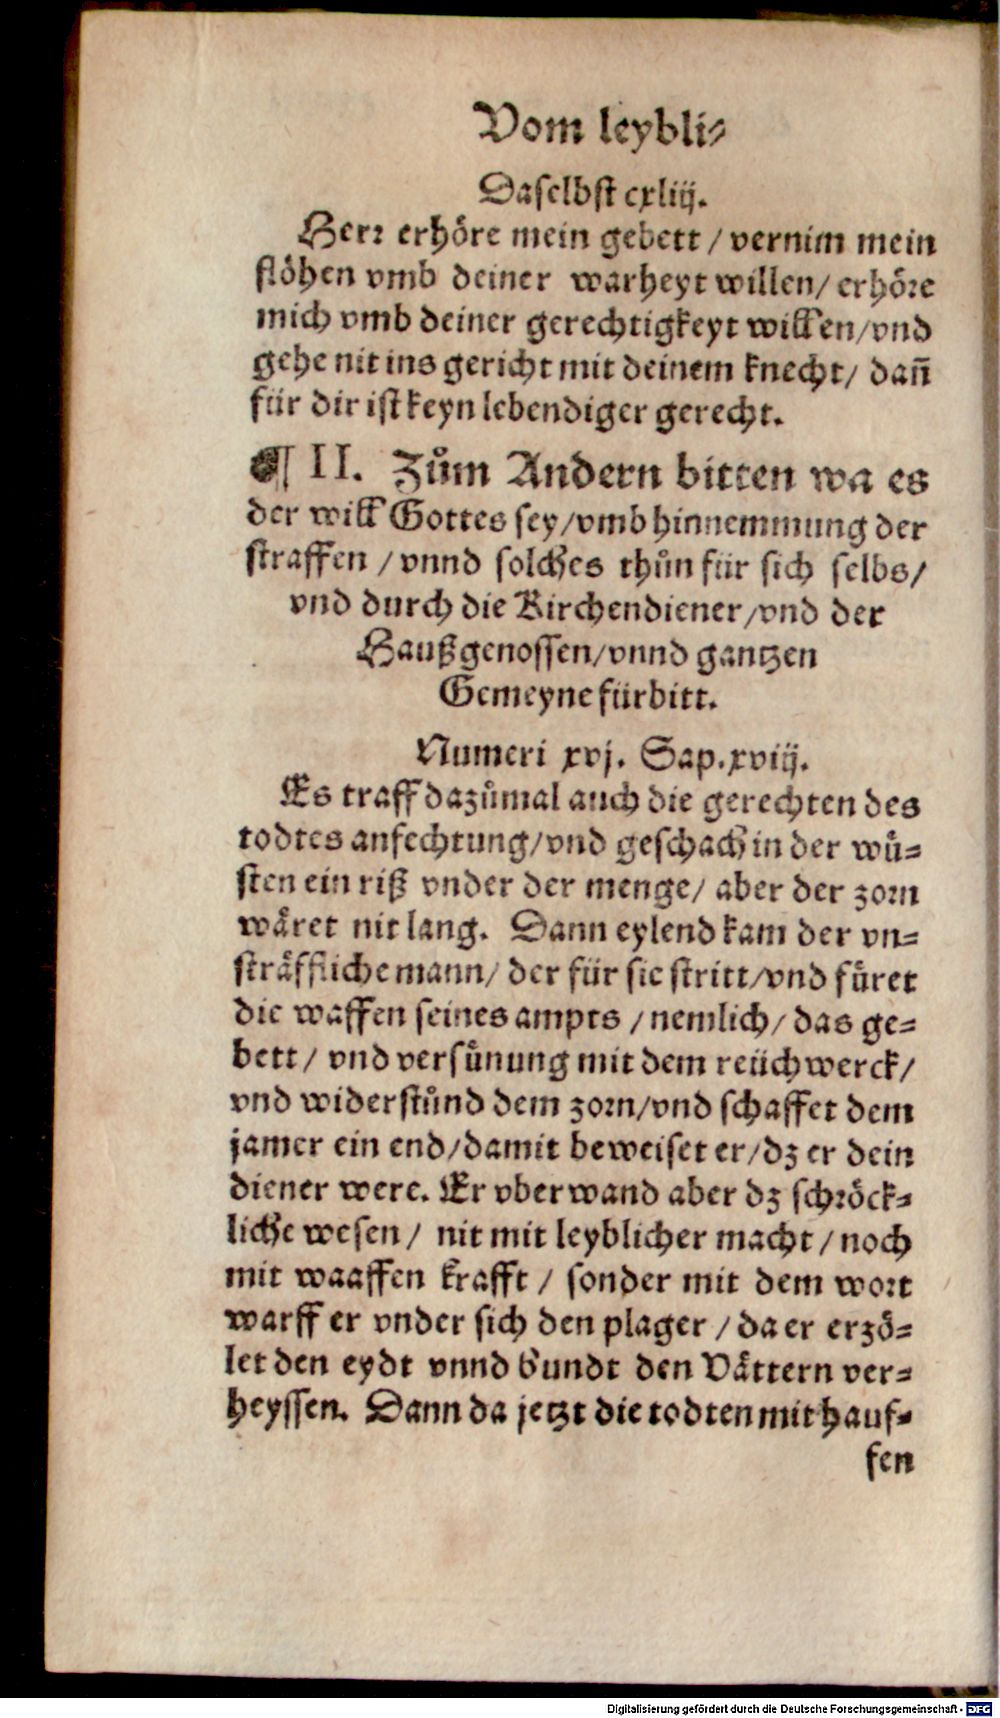 Vom leybli⸗
Daselbst cxliij.
Herr erhöre mein gebett / vernim mein
flöhen vmb deiner warheyt willen / erhöre
mich vmb deiner gerechtigkeyt willen / vnd
gehe nit ins gericht mit deinem knecht / dañ
für dir ist keyn lebendiger gerecht.
¶ II. Zům Andern bitten wa es
der will Gottes sey / vmb hinnemmung der
straffen / vnnd solches thůn für sich selbs /
vnd durch die Kirchendiener / vnd der
Haußgenossen / vnnd gantzen
Gemeyne fürbitt.
Numeri xvj. Sap. xviij.
Es traff dazůmal auch die gerechten des
todtes anfechtung / vnd geschach in der wů⸗
sten ein riß vnder der menge / aber der zorn
wåret nit lang. Dann eylend kam der vn⸗
stråffliche mann / der für sie stritt / vnd fůret
die waffen seines ampts / nemlich / das ge⸗
bett / vnd versůnung mit dem reüchwerck /
vnd widerstůnd dem zorn / vnd schaffet dem
jamer ein end / damit beweiset er / dz er dein
diener were. Er vberwand aber dz schröck⸗
liche wesen / nit mit leyblicher macht / noch
mit waaffen krafft / sonder mit dem wort
warff er vnder sich den plager / da er erzö⸗
let den eydt vnnd bundt den Våttern ver⸗
heyssen. Dann da jetzt die todten mit hauf⸗
fen
Digitalisierung gefördert durch die Deutsche Forschungsgemeinschaft - DFG